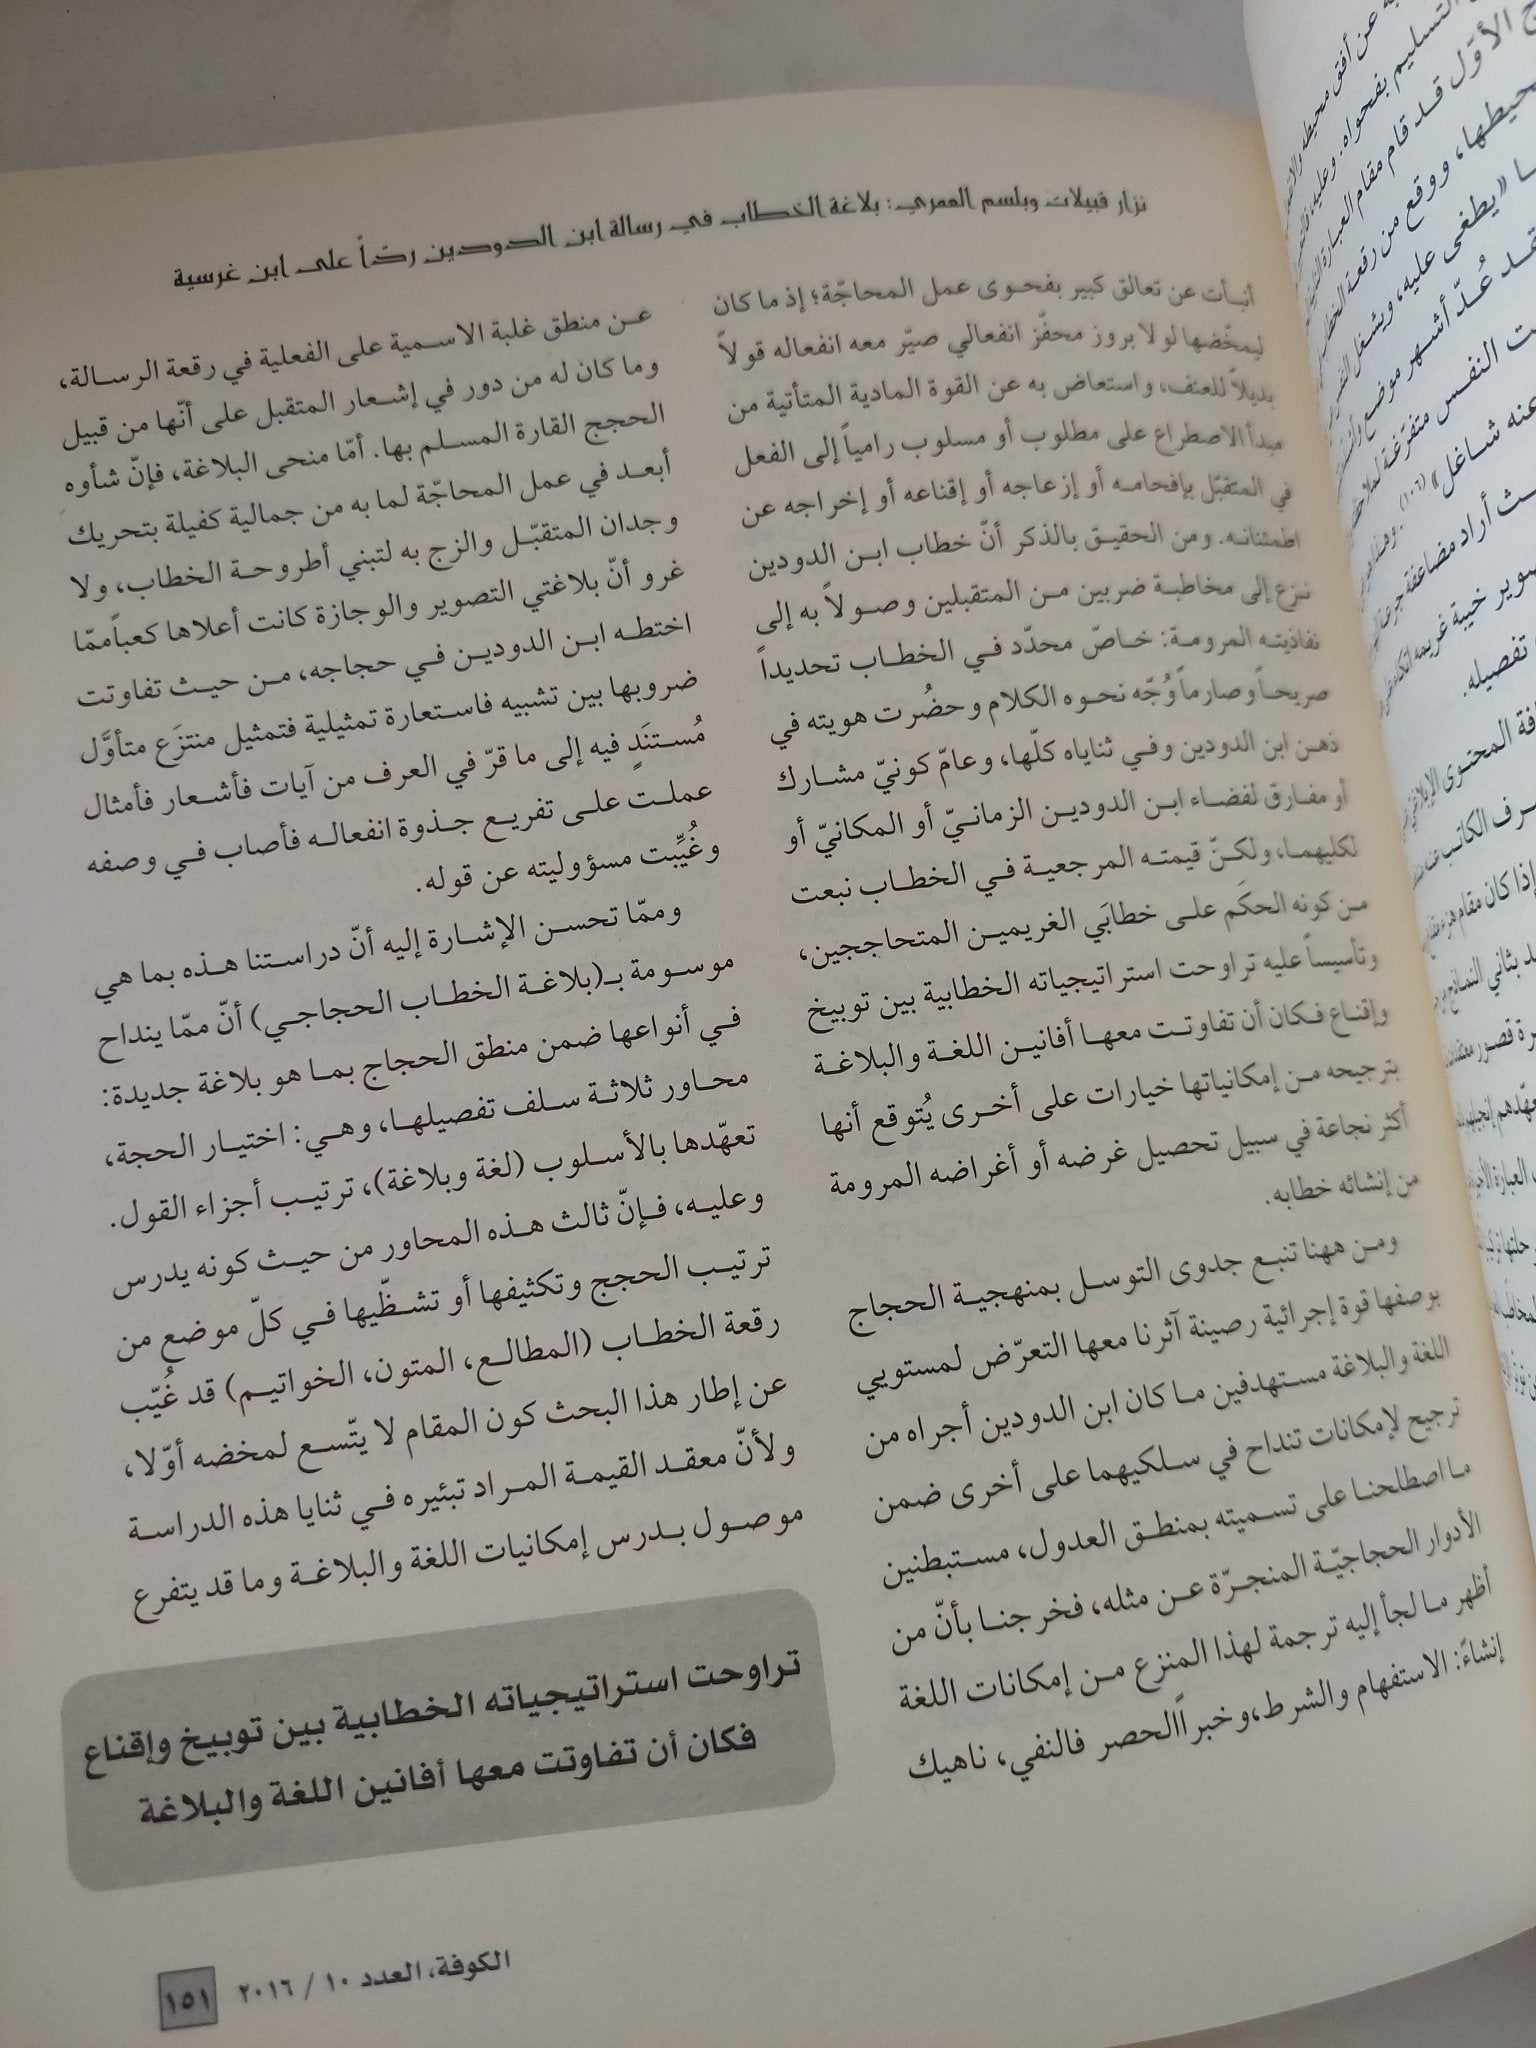 نزار قبيلات وبلسم العمري: بلاغة الخطاب في رسالة ابن الدودين ردّاً على ابن غرسية
أنبأت عن تعالق كبير بفحوى عمل المحاجّة؛ إذ ما كان
ليمخّضها لولا بروز محفّز انفعالي صيّر معه انفعاله قولاً
بديلاً للعنف، واستعاض به عن القوة المادية المتأتية من
مبدأ الاصطراع على مطلوب أو مسلوب رامياً إلى الفعل
في المتقبّل بإفحامه أو إزعاجه أو إقناعه أو إخراجه عن
اطمئنانه. ومن الحقيق بالذكر أنّ خطاب ابن الدودين
نزع إلى مخاطبة ضربين من المتقبلين وصولاً به إلى
نفاذيته المرومة: خاصّ محدّد في الخطاب تحديداً
صريحاً وصارماً وُجّه نحوه الكلام وحضُرت هويته في
ذهن ابن الدودين وفي ثناياه كلّها، وعامّ كونيّ مشارك
أو مفارق لفضاء ابن الدودين الزمانيّ أو المكانيّ أو
لكليهما، ولكنّ قيمته المرجعية في الخطاب نبعت
من كونه الحكَم على خطابَي الغريمين المتحاججين،
وتأسيساً عليه تراوحت استراتيجياته الخطابية بين توبيخ
وإقناع فكان أن تفاوتت معها أفانين اللغة والبلاغة
بترجيحه من إمكانياتها خيارات على أخرى يُتوقع أنها
أكثر نجاعة في سبيل تحصيل غرضه أو أغراضه المرومة
من إنشائه خطابه.
ومن ههنا تنبع جدوى التوسل بمنهجية الحجاج
بوصفها قوة إجرائية رصينة آثرنا معها التعرّض لمستويي
اللغة والبلاغة مستهدفين ما كان ابن الدودين أجراه من
ترجيح لإمكانات تنداح في سلكيهما على أخرى ضمن
ما اصطلحنا على تسميته بمنطق العدول، مستبطنين
الأدوار الحجاجيّة المنجرّة عن مثله، فخرجنا بأنّ من
أظهر ما لجأ إليه ترجمة لهذا المنزع من إمكانات اللغة
إنشاءً: الاستفهام والشرط،وخبراًالحصر فالنفي، ناهيك
عن منطق غلبة الاسمية على الفعلية في رقعة الرسالة،
وما كان له من دور في إشعار المتقبل على أنّها من قبيل
الحجج القارة المسلم بها. أمّا منحى البلاغة، فإنّ شأوه
أبعد في عمل المحاجّة لما به من جمالية كفيلة بتحريك
وجدان المتقبّل والزج به لتبني أطروحة الخطاب، ولا
غرو أنّ بلاغتي التصوير والوجازة كانت أعلاها كعباًممّا
اختطه ابن الدودين في حجاجه، من حيث تفاوتت
ضروبها بين تشبيه فاستعارة تمثيلية فتمثيل منتزَع متأوَّل
مُستنَدٍ فيه إلى ما قرّ في العرف من آيات فأشعار فأمثال
عملت على تفريع جذوة انفعاله فأصاب في وصفه
وغُيِّبت مسؤوليته عن قوله.
وممّا تحسن الإشارة إليه أنّ دراستنا هذه بما هي
موسومة بـ(بلاغة الخطاب الحجاجي) أنّ ممّا ينداح
في أنواعها ضمن منطق الحجاج بما هو بلاغة جديدة:
محاور ثلاثة سلف تفصيلها، وهي: اختيار الحجة،
تعهّدها بالأسلوب (لغة وبلاغة)، ترتيب أجزاء القول.
وعليه، فإنّ ثالث هذه المحاور من حيث كونه يدرس
ترتيب الحجج وتكثيفها أو تشظّيها في كلّ موضع من
رقعة الخطاب (المطالع، المتون، الخواتيم) قد غُيّب
عن إطار هذا البحث كون المقام لا يتّسع لمخضه أوّلا،
ولأنّ معقد القيمة المراد تبئيره في ثنايا هذه الدراسة
موصول بدرس إمكانيات اللغة والبلاغة وما قد يتفرع
تراوحت استراتيجياته الخطابية بين توبيخ وإقناع
فكان أن تفاوتت معها أفانين اللغة والبلاغة
الكوفة، العدد ١٠ / ٢٠١٦
١٥١
عن أفق محيطه
التسليم بفحواه. وعليه،
الأوّل قد قام مقام العبارة
ووقع من رقعة الخطاب
«يطغى عليه، ويشغل
عُدّ أشهر موضع
النفس متفرّغة
عنه شاغل» (١٠٦). وهذا
أراد مضاعفة جرعة
خيبة غريمه
تفصيله.
المحتوى
الكاتب
إذا كان مقام
بثاني النماذج
قصور
العبارة